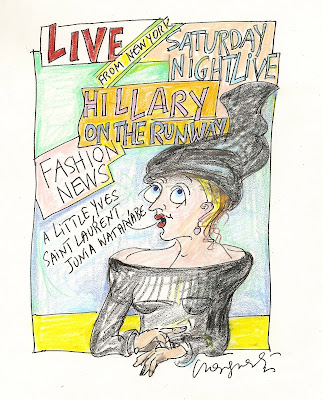 LIVE
FROM NEW YORK
SATURDAY
NIGHTLIVE
HILLARY
ON THE RUNWAY
FASHION
NEWS
A LITTLE YVES
SAINT LAURENT
JUNIA WATANABE